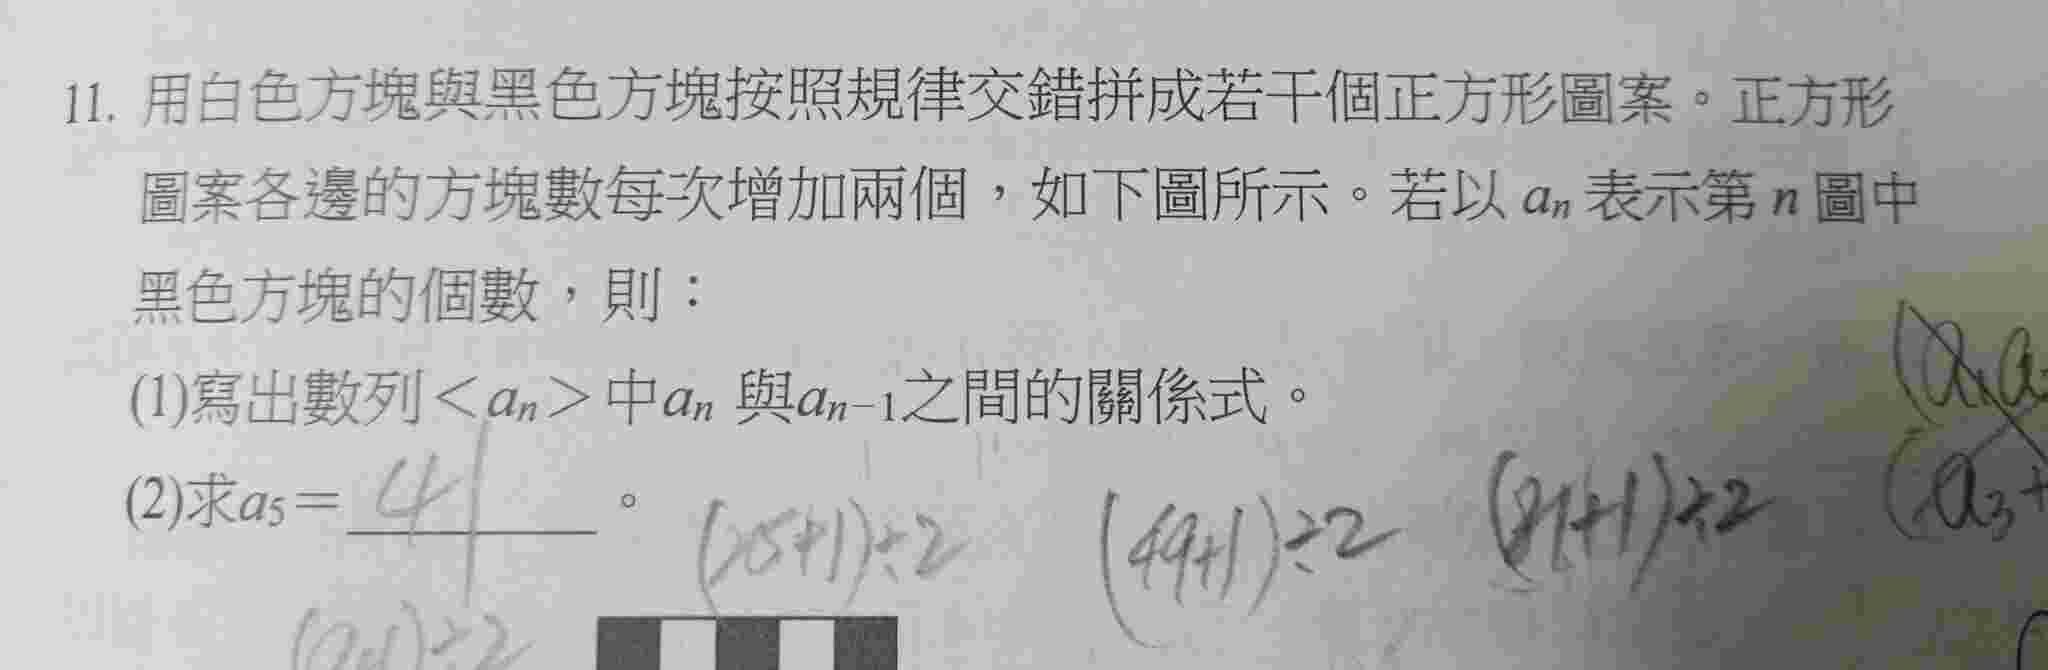 11. 用白色方塊與黑色方塊按照規律交錯拼成若干個正方形圖案。正方形
圖案各邊的方塊數每次增加兩個，如下圖所示。若以 aₙ 表示第 n 圖中
黑色方塊的個數，則：
(1)寫出數列＜aₙ＞中aₙ 與aₙ₋₁之間的關係式。
(2)求a₅＝ 41 。
(25+1)÷2 (49+1)÷2 (81+1)÷2